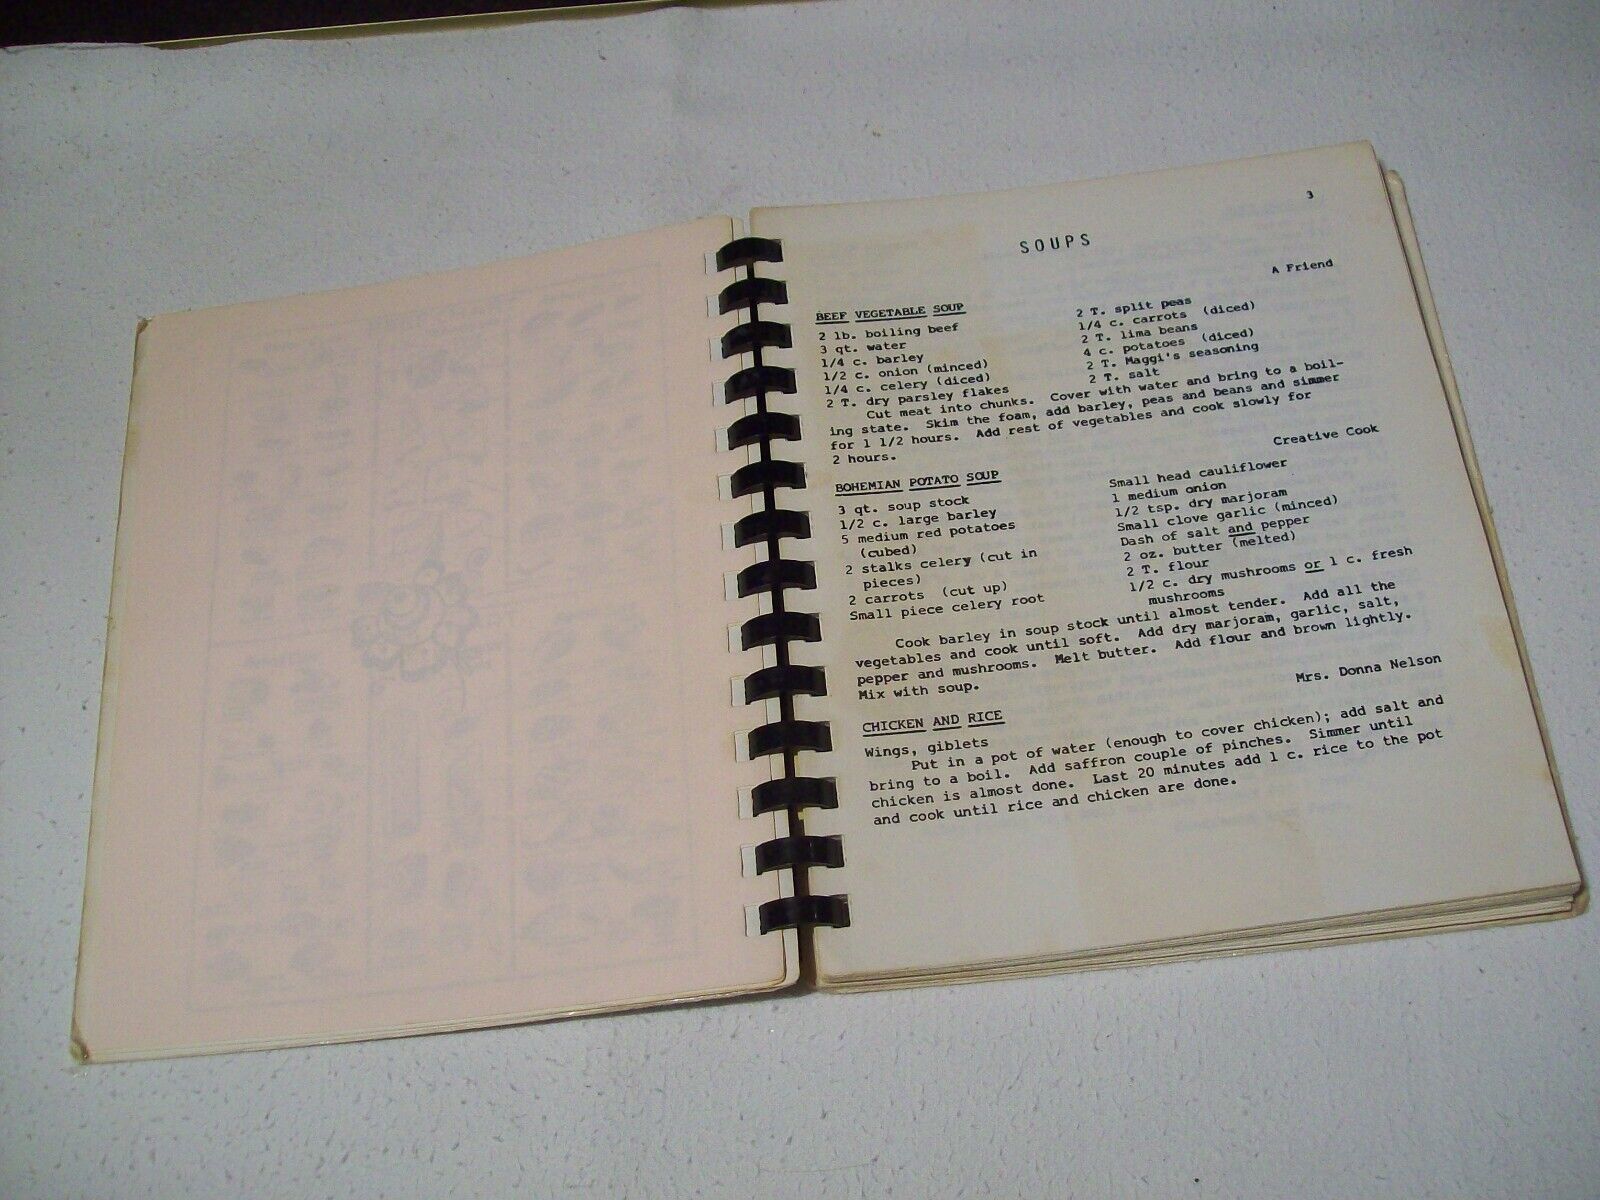 3
SOUPS
A Friend
BEEF VEGETABLE SOUP
2 lb. boiling beef
3 qt. water
1/4 c. barley
1/2 c. onion (minced)
1/4 c. celery (diced)
2 T. dry parsley flakes
2 T. split peas
1/4 c. carrots (diced)
2 T. lima beans
4 c. potatoes (diced)
2 T. Maggi's seasoning
2 T. salt
Cut meat into chunks. Cover with water and bring to a boil-
ing state. Skim the foam, add barley, peas and beans and simmer
for 1 1/2 hours. Add rest of vegetables and cook slowly for
2 hours.
Creative Cook
BOHEMIAN POTATO SOUP
3 qt. soup stock
1/2 c. large barley
5 medium red potatoes
(cubed)
2 stalks celery (cut in
pieces)
2 carrots (cut up)
Small piece celery root
Small head cauliflower
1 medium onion
1/2 tsp. dry marjoram
Small clove garlic (minced)
Dash of salt and pepper
2 oz. butter (melted)
2 T. flour
1/2 c. dry mushrooms or 1 c. fresh
mushrooms
Cook barley in soup stock until almost tender. Add all the
vegetables and cook until soft. Add dry marjoram, garlic, salt,
pepper and mushrooms. Melt butter. Add flour and brown lightly.
Mix with soup.
Mrs. Donna Nelson
CHICKEN AND RICE
Wings, giblets
Put in a pot of water (enough to cover chicken); add salt and
bring to a boil. Add saffron couple of pinches. Simmer until
chicken is almost done. Last 20 minutes add 1 c. rice to the pot
and cook until rice and chicken are done.